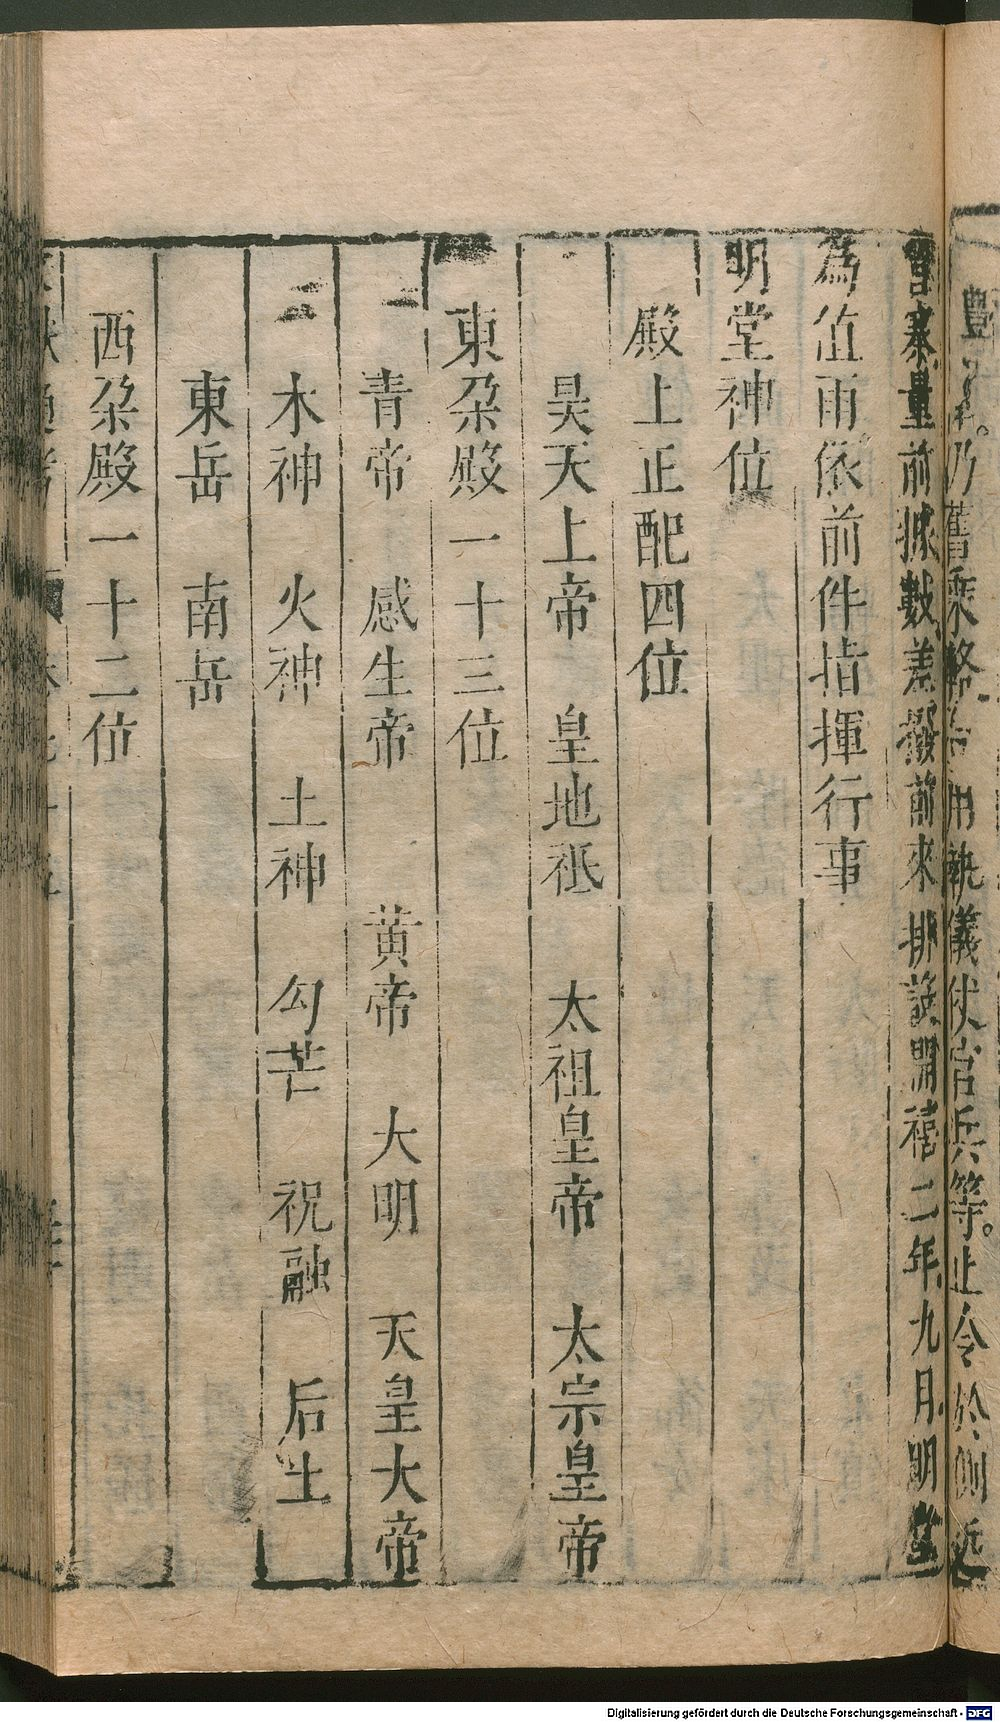 仍舊乘輅 用執儀仗官兵等。止令於側近
營寨量前據數差撥前來排設開禧二年九月明堂
為值雨依前件指揮行事
明堂神位
殿上正配四位
昊天上帝 皇地祇 太祖皇帝 太宗皇帝
東朶殿一十三位
青帝 感生帝 黄帝 大明 天皇大帝
木神 火神 土神 勾芒 祝融 后土
東岳 南岳
西朶殿一十二位
Digitalisierung gefördert durch die Deutsche Forschungsgemeinschaft - DFG